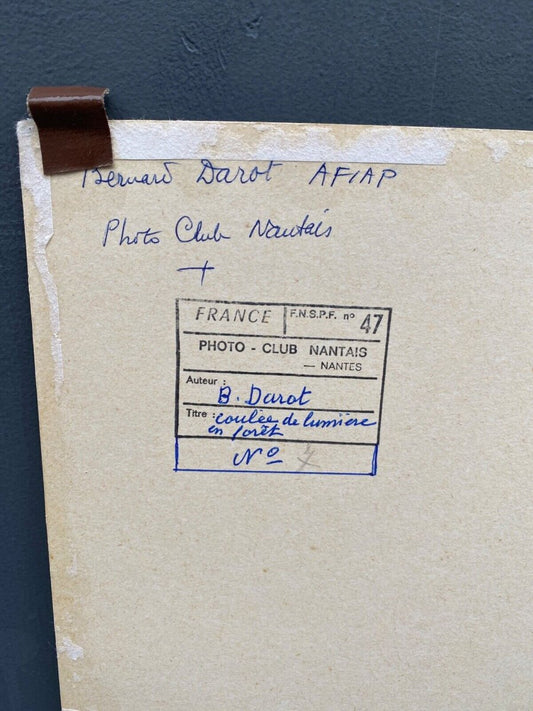 Bernard Darot AFIAP
Photo Club Nantais
+
FRANCE F.N.S.P.F. n° 47
PHOTO - CLUB NANTAIS
— NANTES
Auteur :
B. Darot
Titre : coulée de lumière
en forêt
N°